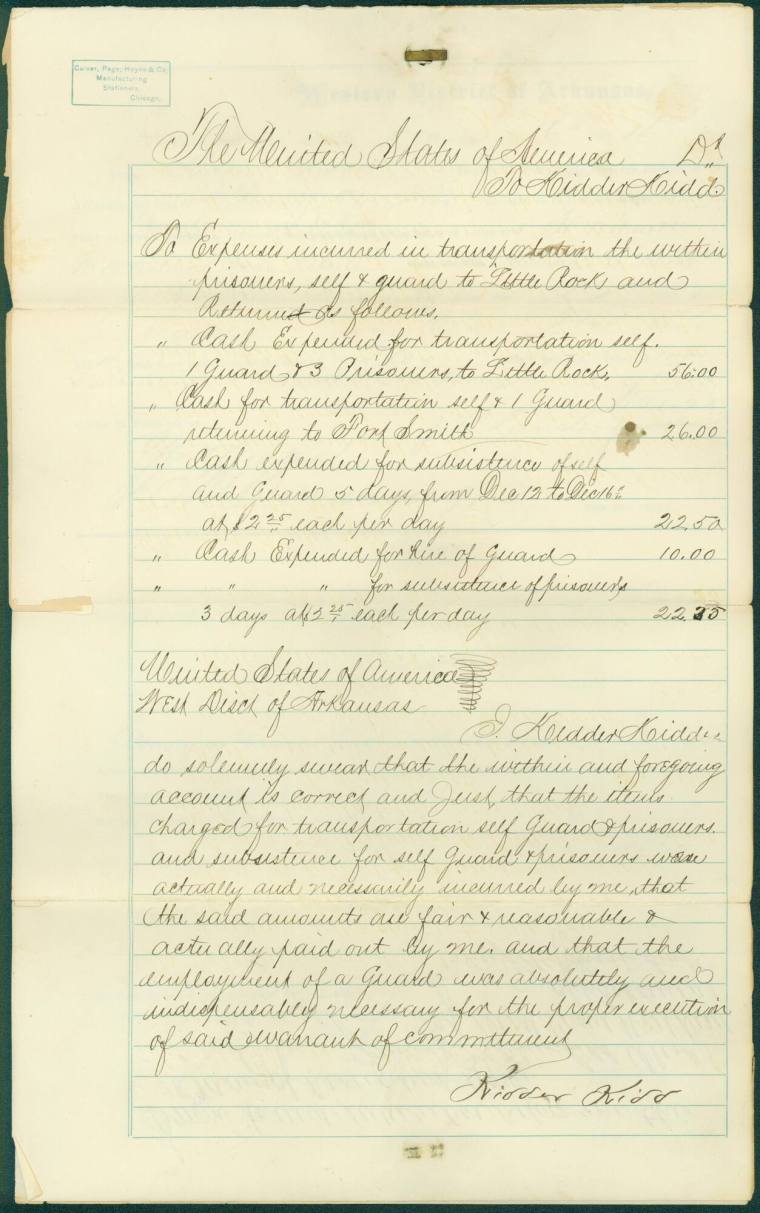 Culver, Page, Hoyne & Co.
Manufacturing
Stationers,
Chicago.
The United States of America Dr
To Kidder Kidd.
To Expenses incurred in transportation the within
prisoners, self & guard to Little Rock and
Returned as follows.
" Cash Expended for transportation self.
1 Guard & 3 Prisoners, to Little Rock, 56.00
" Cash for transportation self & 1 Guard
returning to Fort Smith 26.00
" Cash expended for subsistence of self
and Guard 5 days, from Dec 12 to Dec 16th
at $2 25 each per day 22.50
" Cash Expended for hire of Guard 10.00
" " " for subsistence of prisoners
3 days at $2 25 each per day 22.25
United States of America
West Disct of Arkansas
I. Kidder Kidd
do solemnly swear that the within and foregoing
account is correct and Just, that the items
charged for transportation self Guard & prisoners.
and subsistence for self Guard & prisoners were
actually and necessarily incurred by me, that
the said amounts are fair & reasonable &
actually paid out by me. and that the
employment of a Guard was absolutely and
indispensably necessary for the proper execution
of said warrant of commitment
Kidder Kidd